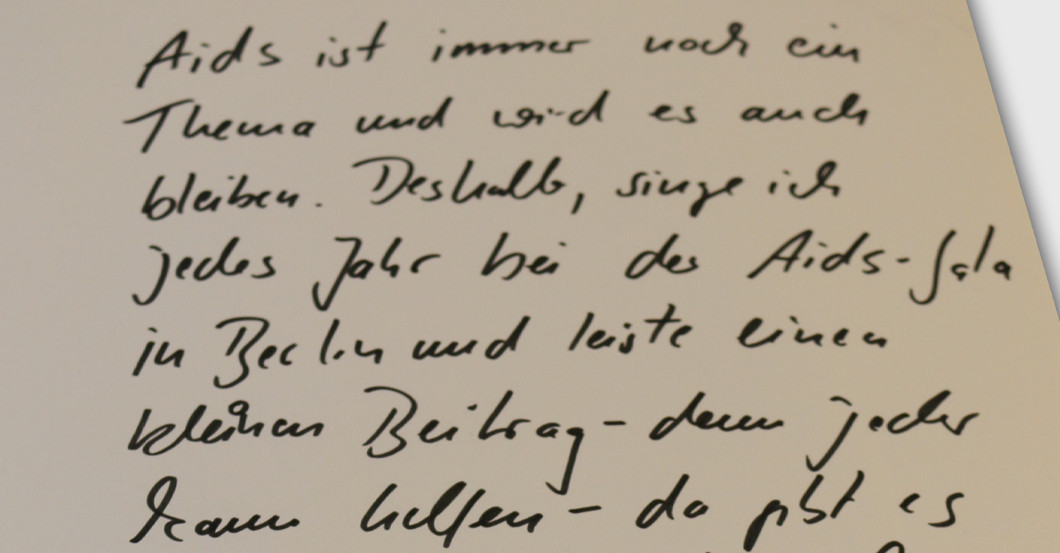 Aids ist immer noch ein
Thema und wird es auch
bleiben. Deshalb, singe ich
jedes Jahr bei der Aids-Gala
in Berlin und leiste einen
kleinen Beitrag - denn jeder
kann helfen - da gibt es